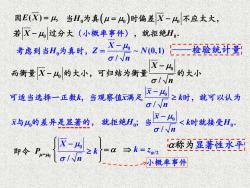 因E(X̄) = μ, 当H₀为真(μ = μ₀)时偏差 X̄ − μ₀ 不应太大,
若|X̄ − μ₀|过分大(小概率事件), 就拒绝H₀.
考虑到当H₀为真时, Z = (X̄ − μ₀)/(σ/√n) ~ N(0,1) 检验统计量
而衡量|X̄ − μ₀|的大小, 可归结为衡量 |X̄ − μ₀|/(σ/√n) 的大小
可适当选择一正数k, 当观察值x̄满足 |x̄ − μ₀|/(σ/√n) ≥ k时, 就可以认为
x̄与μ₀的差异是显著的, 就拒绝H₀; 当 |x̄ − μ₀|/(σ/√n) < k时就接受H₀.
即令 P_{μ=μ₀}{|X̄ − μ₀|/(σ/√n) ≥ k} = α ⇒ k = z_{α/2} α称为显著性水平